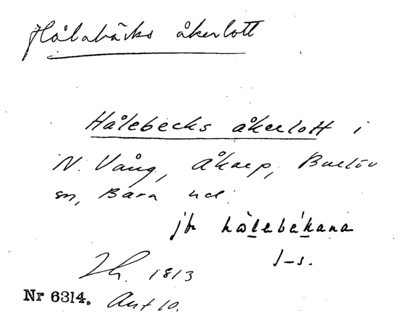 Hålabäcks åkerlott
Hålebecks åkerlott i
N. Vång, Åkarp, Burlöv
sn, Bara hd.
jfr hålebékana
1-s.
Lh. 1813
Nr 6314. Akt 10.